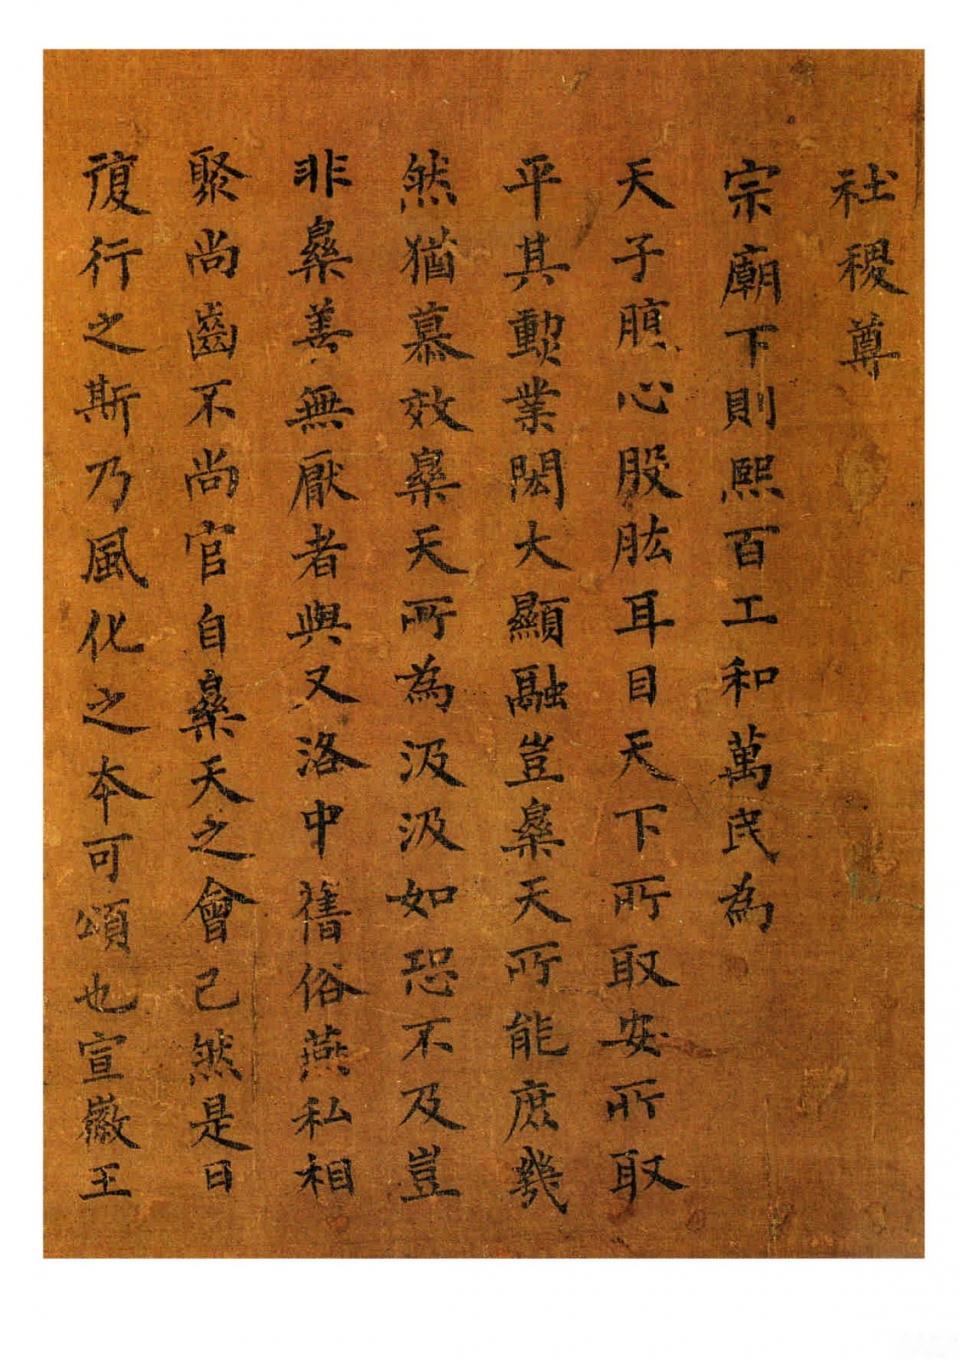 社稷尊
宗廟下則熙百工和萬民為
天子腹心股肱耳目天下所取安所取
平其勳業閎大顯融豈樂天所能庶幾
然猶慕效樂天所為汲汲如恐不及豈
非樂善無厭者與又洛中舊俗燕私相
聚尚齒不尚官自樂天之會已然是日
復行之斯乃風化之本可頌也宣徽王